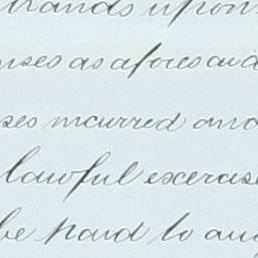 hands upon
nses as aforesaid
ses incurred and
lawful exercise
be paid to any